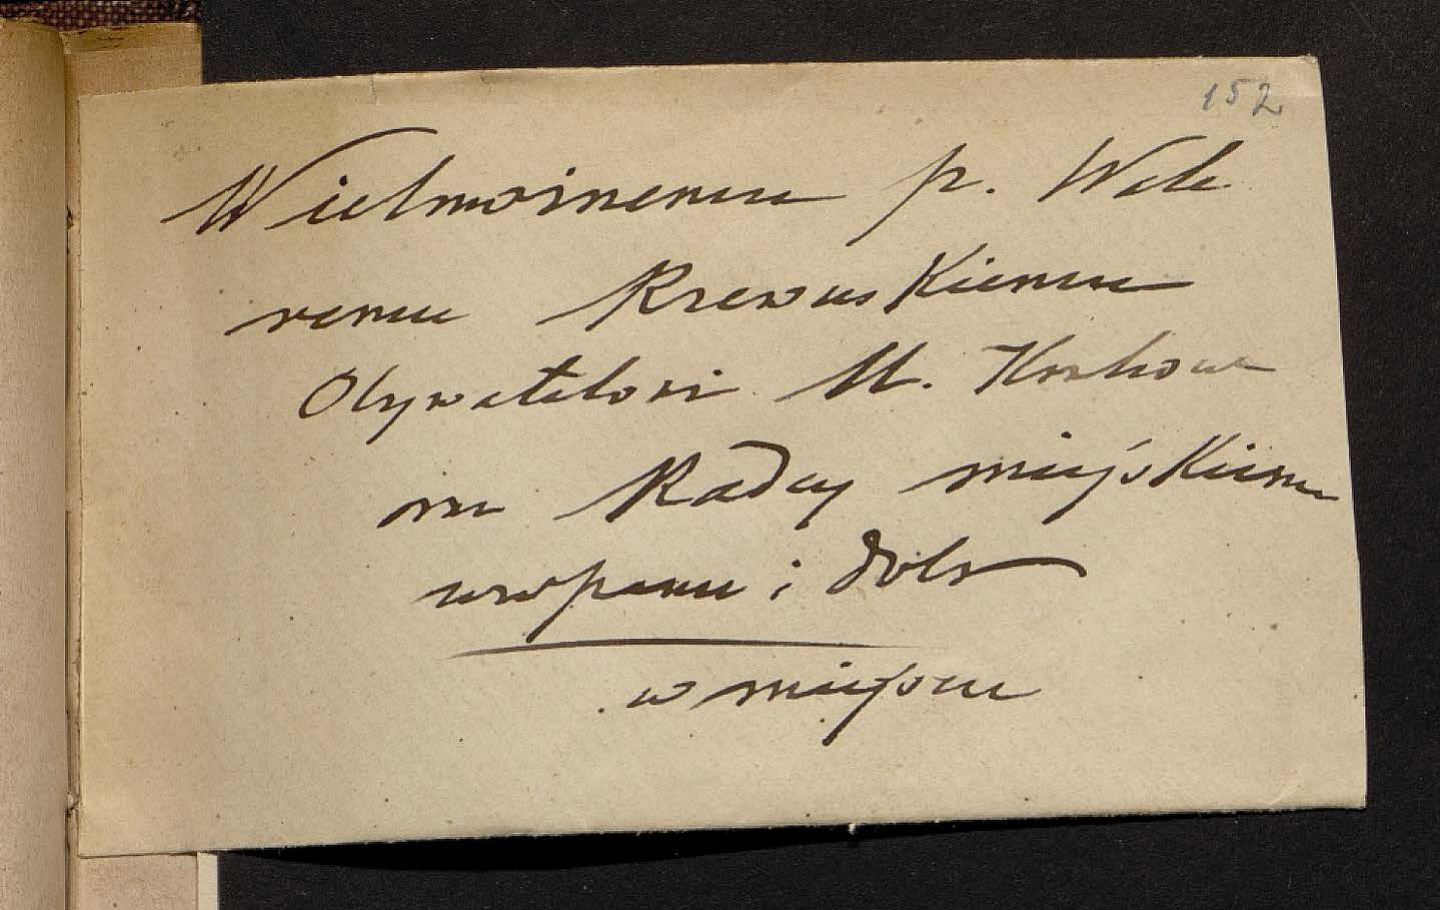 152
Wielmożnemu p. Wale
remu Rzewuskiemu
Obywatelowi M. Krakowa
mu Radcy miejskiemu
panu i dobr
w miejscu